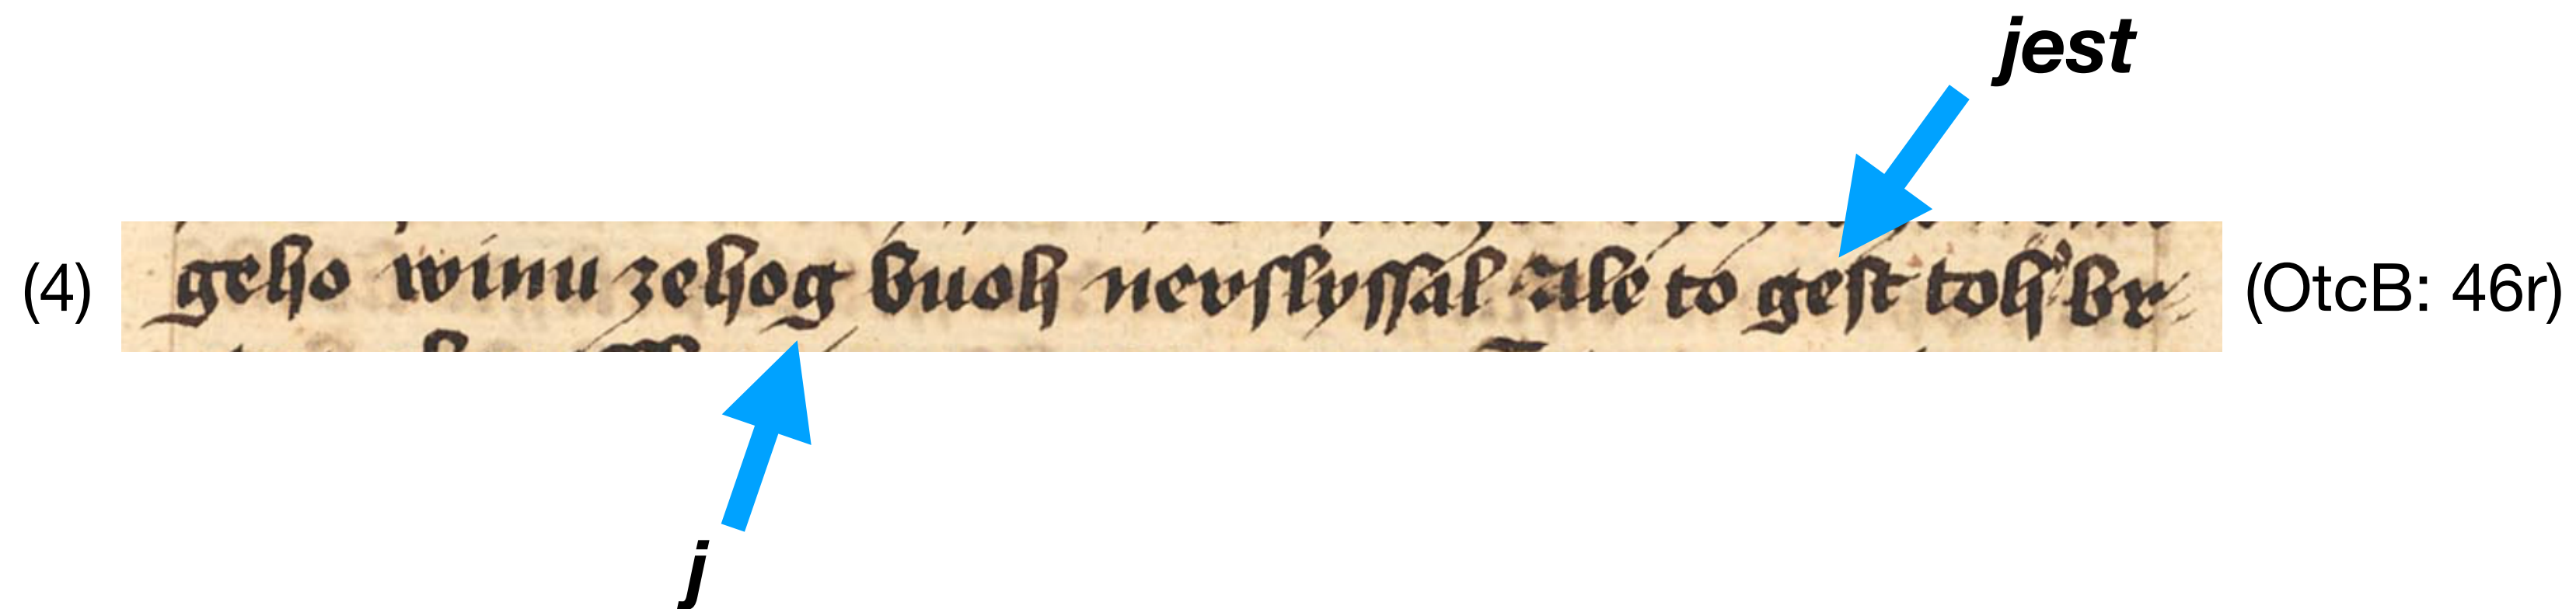 jest
(4) geho winu zehog buoh nevſlyſſal Ale to geſt toh br- (OtcB: 46r)
j